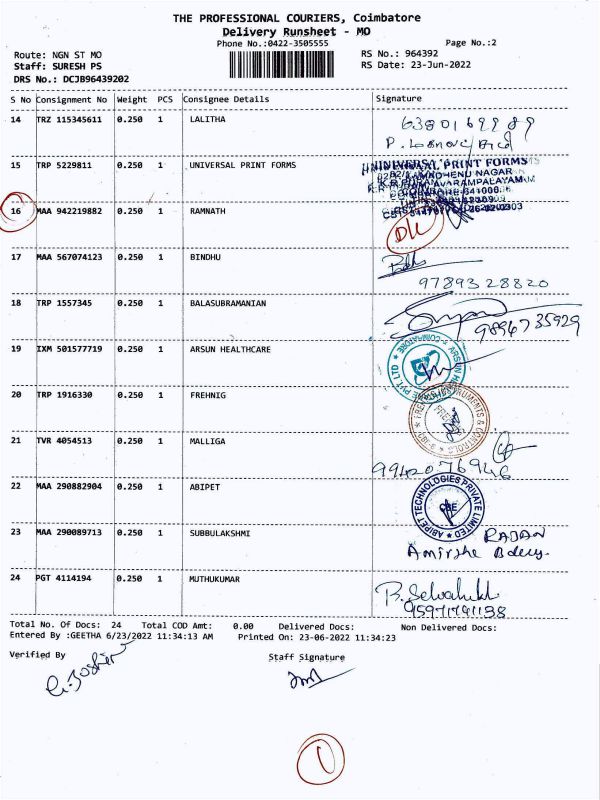 THE PROFESSIONAL COURIERS, Coimbatore
Delivery Runsheet - MO
Phone No.:0422-3505555
Page No.:2
Route: NGN ST MO
RS No.: 964392
Staff: SURESH PS
RS Date: 23-Jun-2022
DRS No.: DCJB96439202
S No Consignment No Weight PCS Consignee Details Signature
14 TRZ 115345611 0.250 1 LALITHA
15 TRP 5229811 0.250 1 UNIVERSAL PRINT FORMS
UNIVERSAL PRINT FORMS
16 MAA 942219882 0.250 1 RAMNATH
17 MAA 567074123 0.250 1 BINDHU
9789328820
18 TRP 1557345 0.250 1 BALASUBRAMANIAN
9894735929
19 IXM 501577719 0.250 1 ARSUN HEALTHCARE
20 TRP 1916330 0.250 1 FREHNIG
21 TVR 4054513 0.250 1 MALLIGA
9942076946
22 MAA 290882904 0.250 1 ABIPET
ABIPET TECHNOLOGIES PRIVATE LIMITED
CBE
23 MAA 290089713 0.250 1 SUBBULAKSHMI
24 PGT 4114194 0.250 1 MUTHUKUMAR
Total No. Of Docs: 24 Total COD Amt: 0.00 Delivered Docs: Non Delivered Docs:
Entered By :GEETHA 6/23/2022 11:34:13 AM Printed On: 23-06-2022 11:34:23
Verified By Staff Signature
1